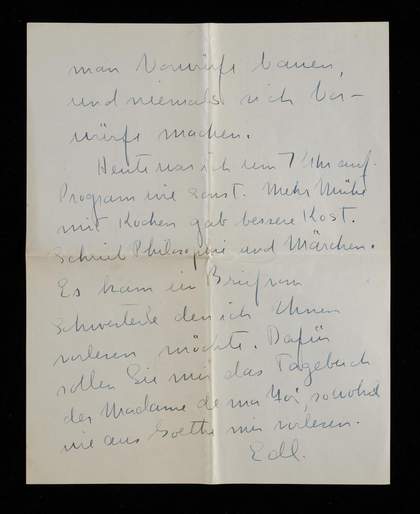 man Vorwürfe bauen,
und niemals sich Vor-
würfe machen.
Heute war ich um 7 Uhr auf.
Program wie sonst. Mehr Mühe
mit Kochen gab bessere Kost.
Schrieb Philosophie und Märchen.
Es kam ein Brief von
den ich Ihnen
vorlesen möchte. Dafür
sollen Sie mir das Tagebuch
der Madame de, sowohl
wie aus Goethe mir vorlesen.